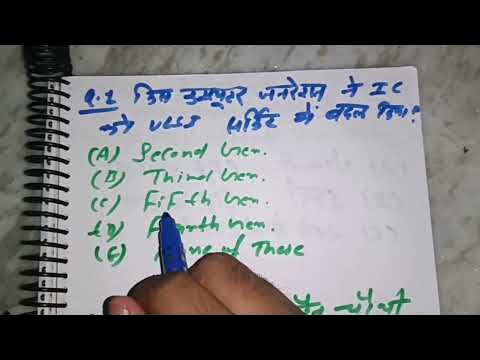 Q.1 किस कम्प्यूटर जनरेशन ने IC
को VLSI सर्किट में बदल दिया?
(A) Second Gen.
(B) Third Gen.
(C) FiFth Gen.
(D) Fourth Gen.
(E) None of These